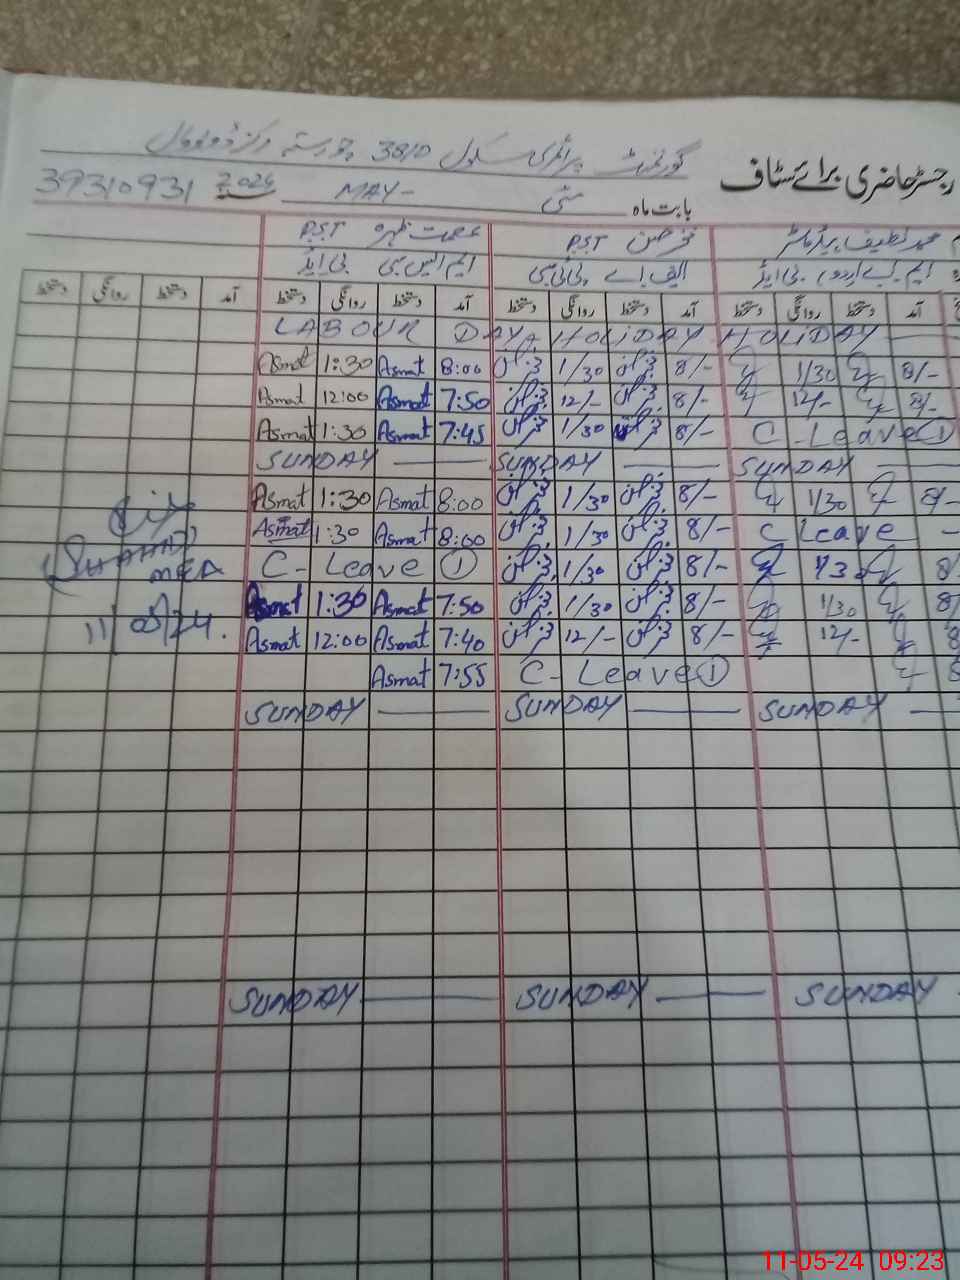 رجسٹر حاضری برائے سٹاف
گورنمنٹ پرائمری سکول 38/D
بابت ماہ مئی MAY- 2024 39310931
محمد لطیف ہیڈ ماسٹر P.S.T عصمت زہرہ P.S.T
ایم اے اردو، بی ایڈ ایف اے پی ٹی سی ایم ایس سی بی ایڈ
آمد دستخط روانگی دستخط آمد دستخط روانگی دستخط آمد دستخط روانگی دستخط آمد دستخط روانگی دستخط
LABOUR DAY HOLIDAY HOLIDAY
Asmat 1:30 Asmat 8:00 1/30 8/- 1/30 8/-
Asmat 12:00 Asmat 7:50 12/- 8/- 12/- 8/-
Asmat 1:30 Asmat 7:45 1/30 8/- C-Leave 1
SUNDAY SUNDAY SUNDAY
Asmat 1:30 Asmat 8:00 1/30 8/- 1/30 8/-
Asmat 1:30 Asmat 8:00 1/30 8/- C Leave -
C- Leave 1 1/30 8/- 1/30 8/
MEA
Asmat 1:30 Asmat 7:50 1/30 8/- 1/30 8/
11/05/24. Asmat 12:00 Asmat 7:40 12/- 8/- 12/- 8
Asmat 7:55 C- Leave 1 8
SUNDAY SUNDAY SUNDAY
SUNDAY SUNDAY SUNDAY
11-05-24 09:23